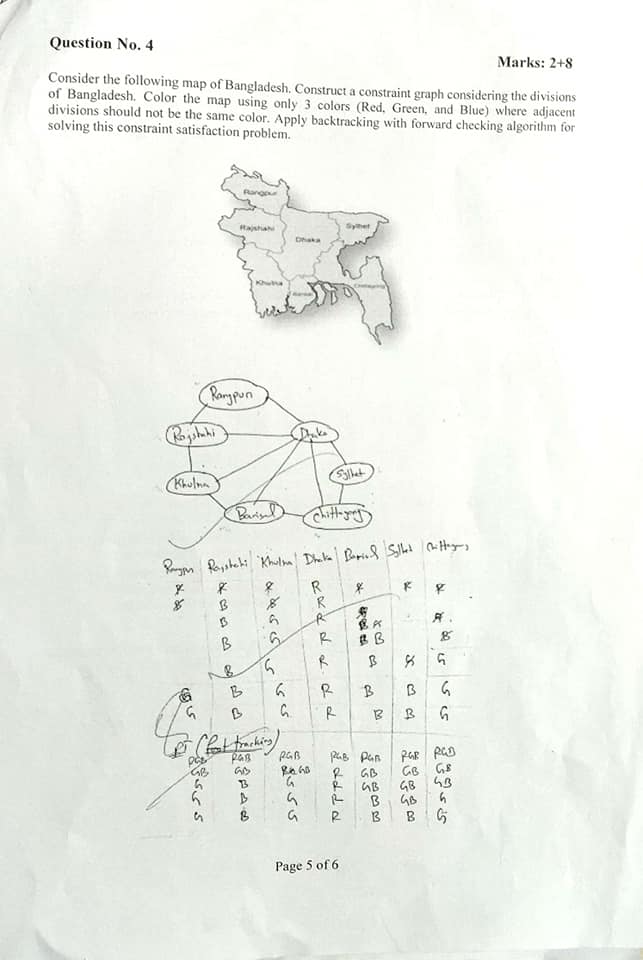 Question No. 4
Marks: 2+8
Consider the following map of Bangladesh. Construct a constraint graph considering the divisions
of Bangladesh. Color the map using only 3 colors (Red, Green, and Blue) where adjacent
divisions should not be the same color. Apply backtracking with forward checking algorithm for
solving this constraint satisfaction problem.
Rangpur
Rajshahi
Dhaka
Sylhet
Khulna
Barisal
Chittagong
Rangpur
Rajshahi
Dhaka
Khulna
Sylhet
Barisal
Chittagong
Rangpur Rajshahi Khulna Dhaka Barisal Sylhet Chittagong
R R R R R R R
B B B R
B G R
B G R B B B
B G R B G
G B G R B B G
G B G R B B G
tracking)
RGB RGB RGB RGB RGB RGB RGB
GB GB GB R GB GB GB
G B G R GB GB GB
G B G R B GB G
G B G R B B G
Page 5 of 6